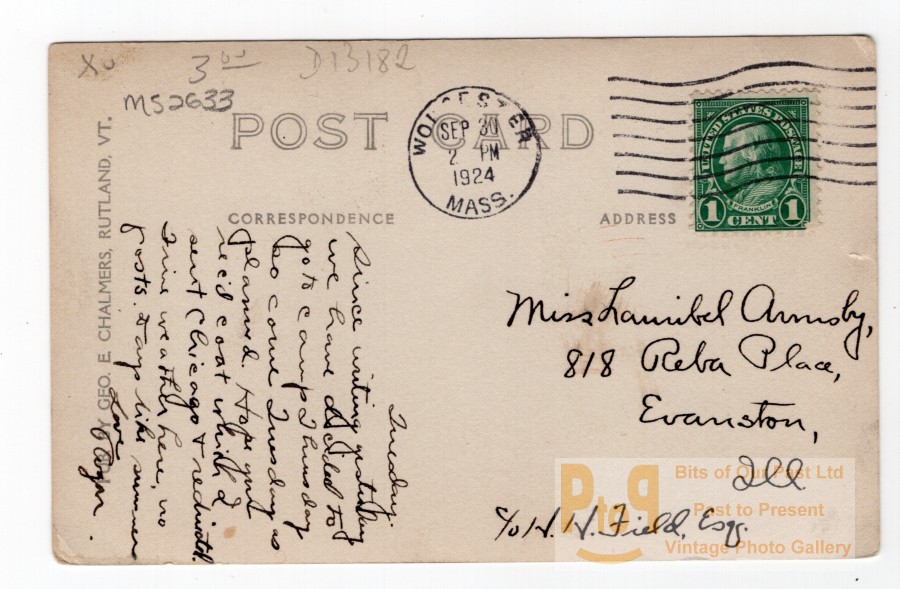 3.00
D13182
MS2633
POST CARD
WORCESTER
SEP 30
2 PM
1924
MASS.
UNITED STATES POSTAGE
FRANKLIN
1 CENT 1
CORRESPONDENCE
ADDRESS
PUB. BY GEO. E. CHALMERS, RUTLAND, VT.
Tuesday.
Since writing yesterday
we have decided to
go to camp Thursday
so come Tuesday as
planned. Hope you
rec'd coat which I
sent Chicago & redirected.
Fine weather here, no
frosts. Days like summer
Love
Miss Lauribel Armsby,
818 Reba Place,
Evanston,
Ill.
c/o H. H. Field, Esq.
PtoP
Bits of Our Past Ltd
Past to Present
Vintage Photo Gallery